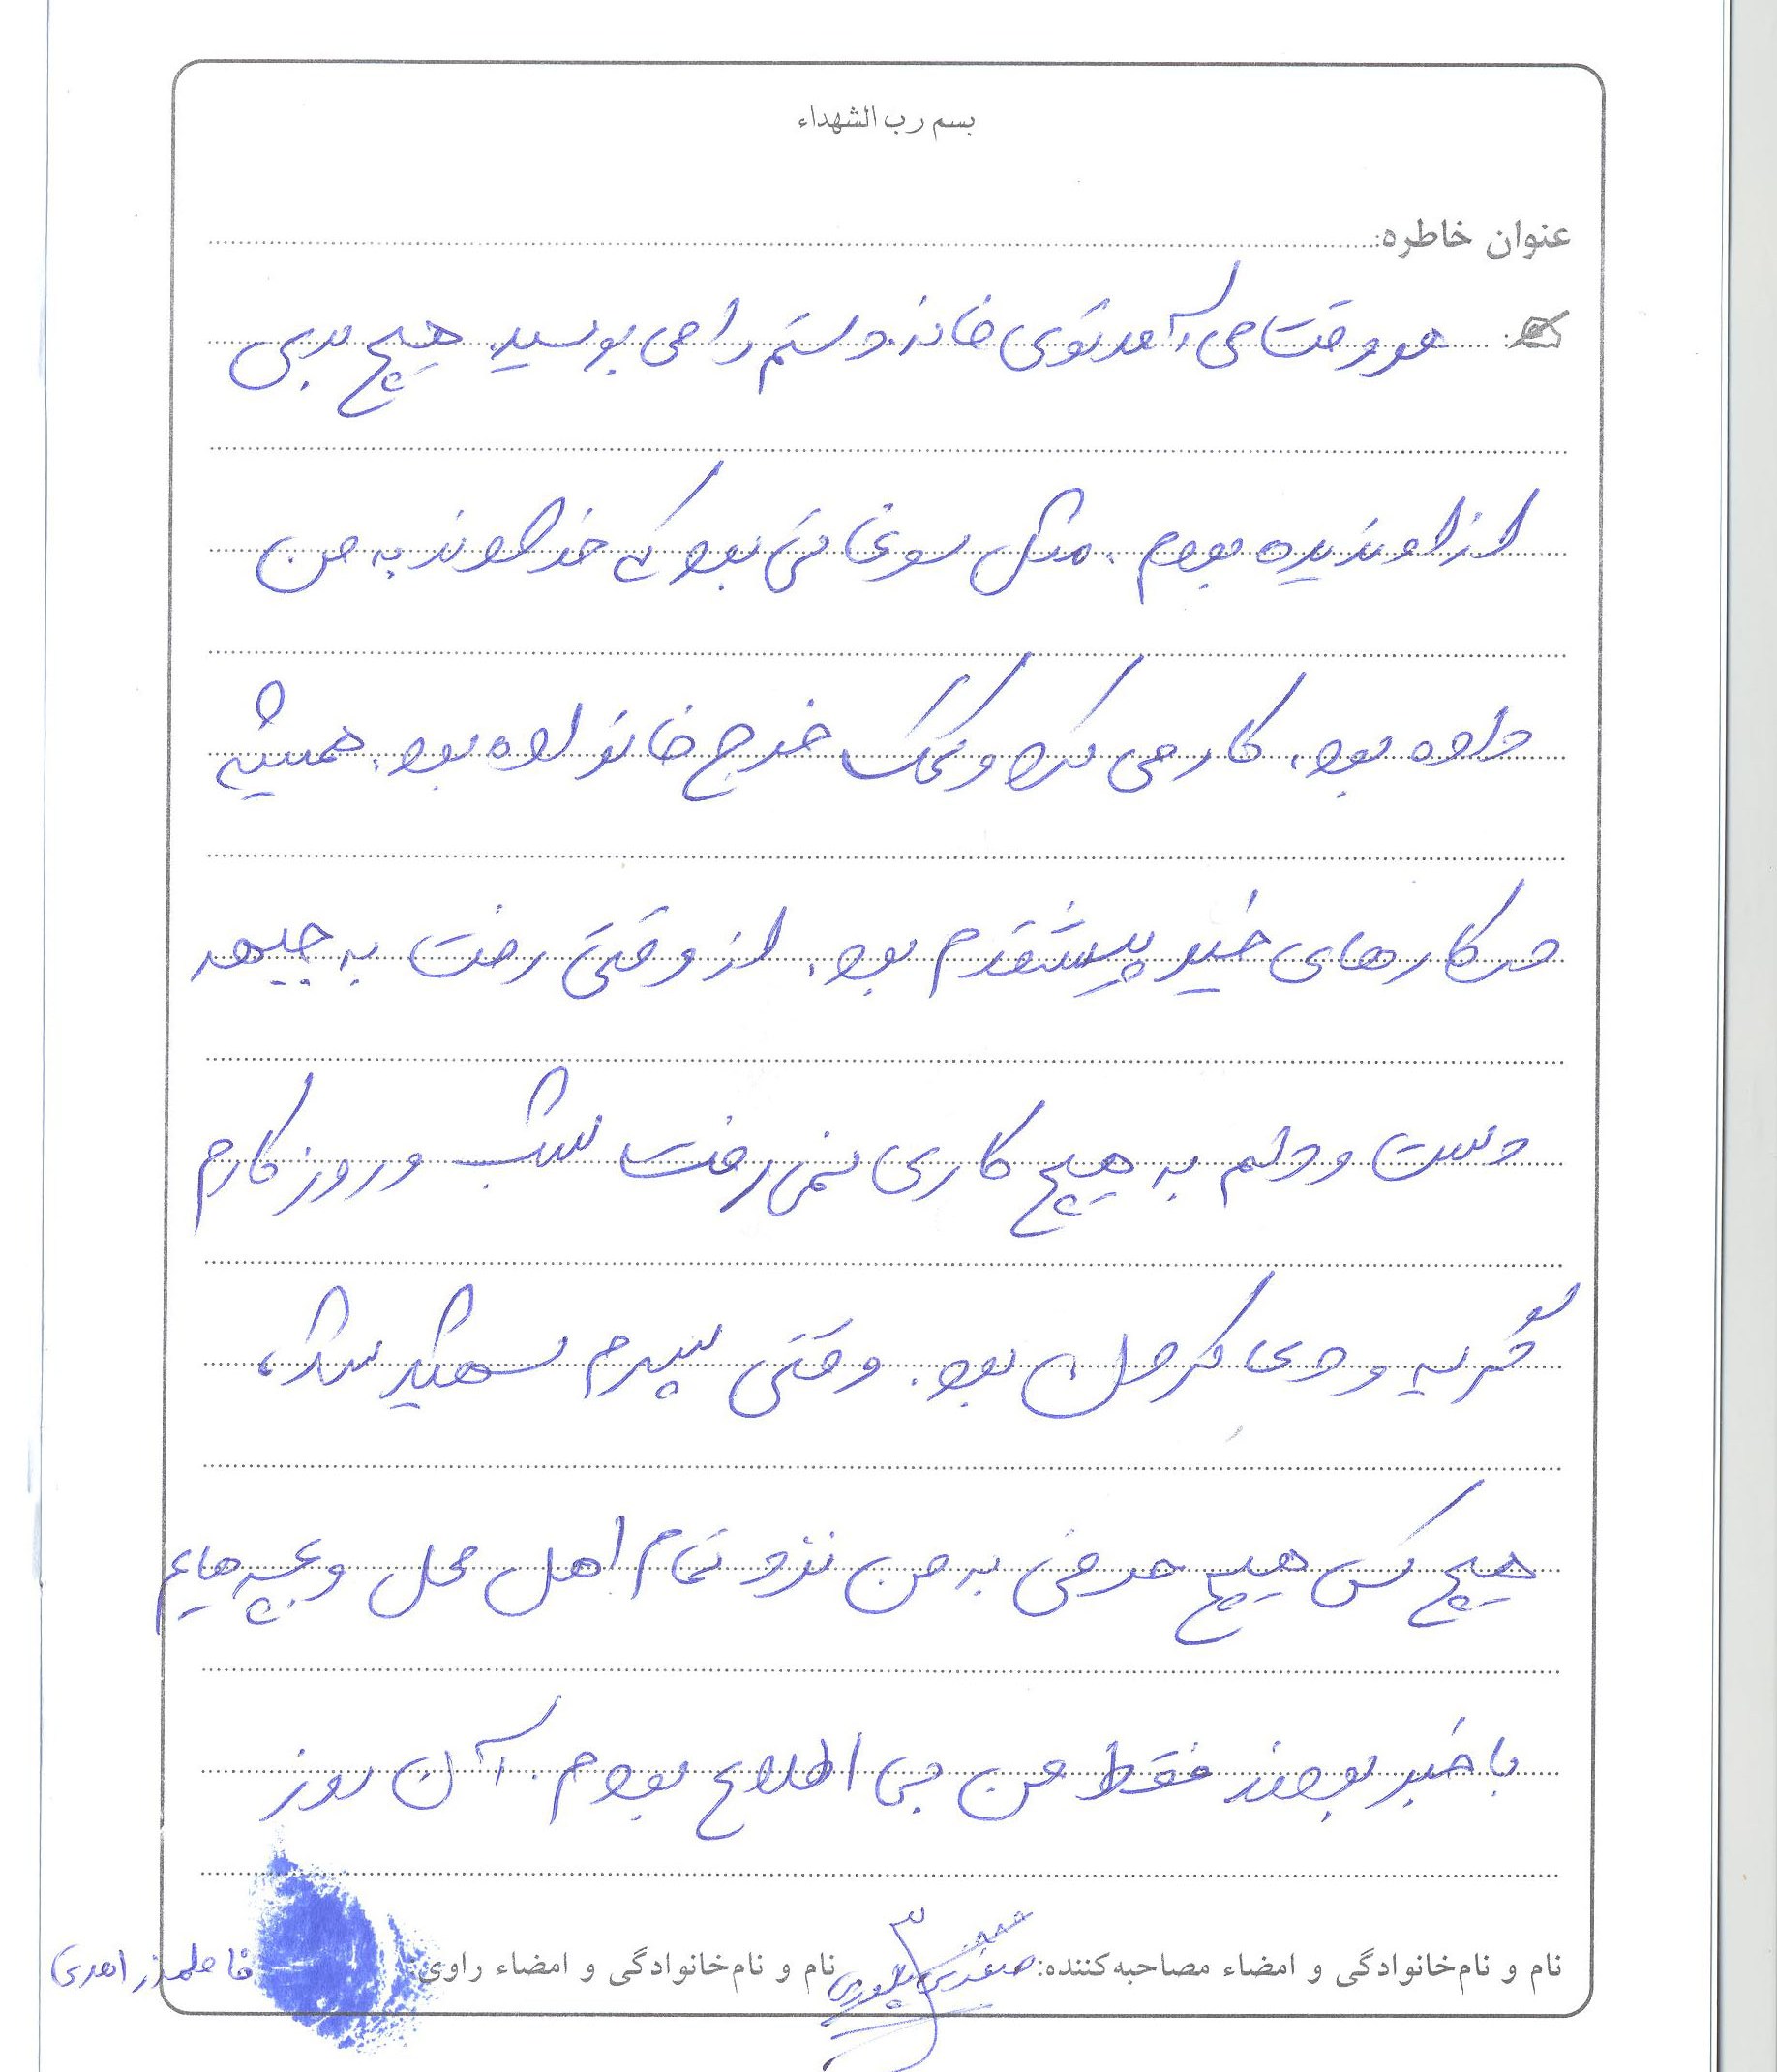 بسم رب الشهداء
عنوان خاطره:
هر وقت می آمد توی خانه. دستم را می بوسید. هیچ بدی
از او ندیده بودم. مثل سوغاتی بود که خداوند به من
داده بود. کار می کرد و کمک خرج خانواده بود. همیشه
در کارهای خیر پیشقدم بود. از وقتی رفت به جبهه
دست و دلم به هیچ کاری نمی رفت شب و روز کارم
گریه و دل بود. وقتی پسرم شهید شد،
هیچ کس هیچ حرفی به من نزد تمام اهل محل و بچه هایم
با خبر بودند فقط من بی اطلاع بودم. آن روز
نام و نام‌خانوادگی و امضاء مصاحبه‌کننده: نام و نام‌خانوادگی و امضاء راوی فاطمه زاهدی